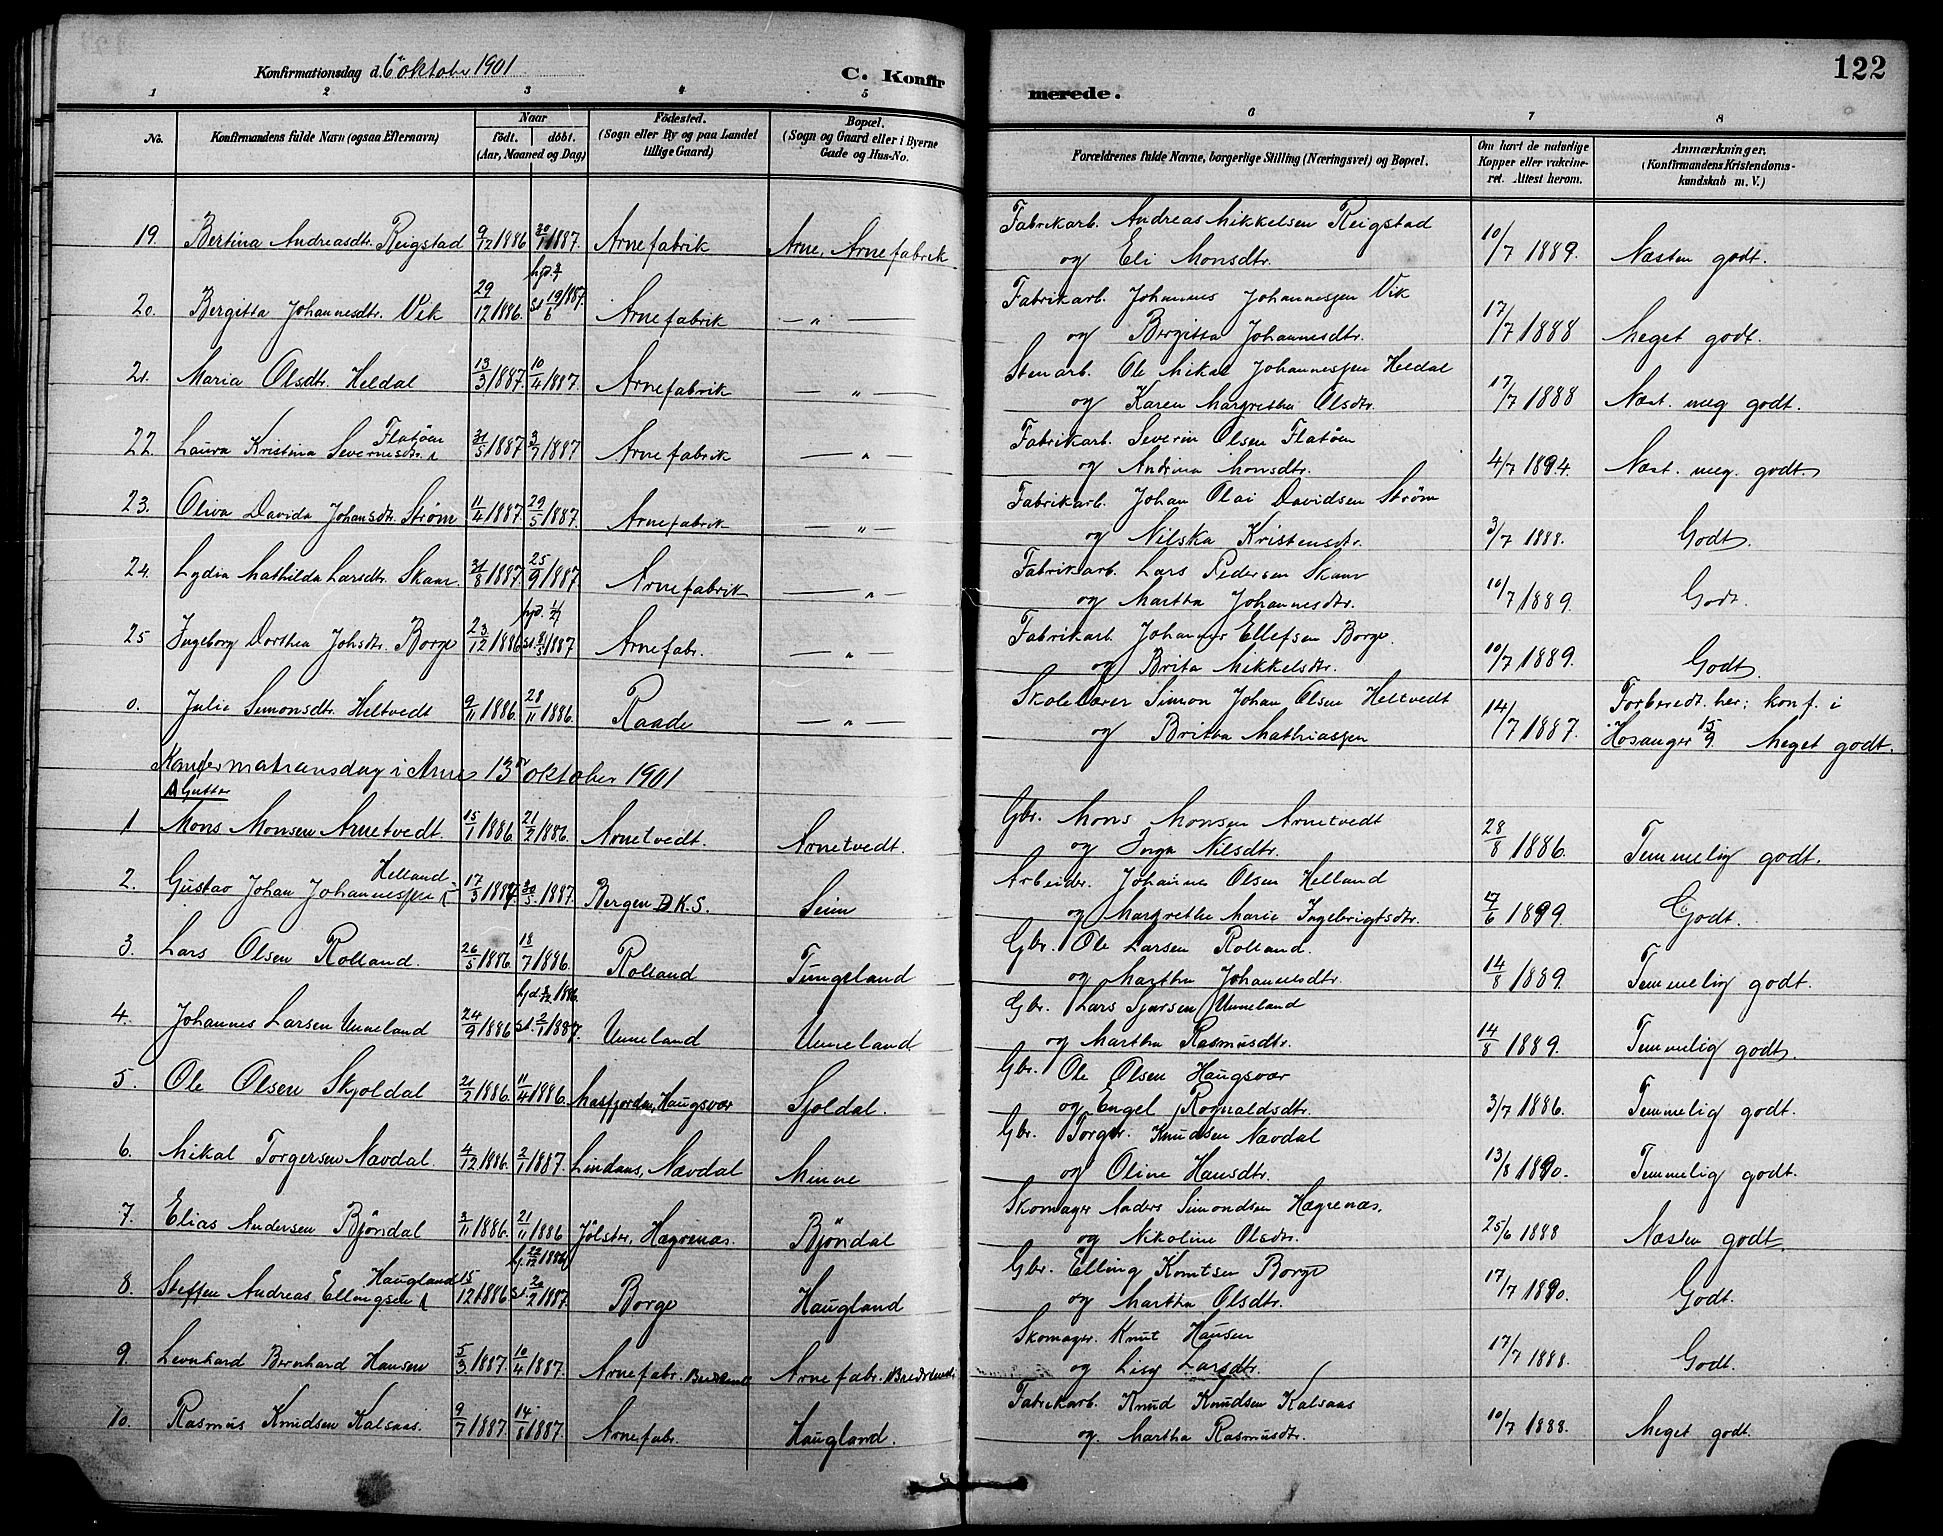 Konfirmationsdag d. 6te oktober 1901
C. Konfirmerede.
122
1 2 3 4 5 6 7 8
No.
Konfirmandens fulde Navn (ogsaa Efternavn)
Naar
Födt. döbt.
(Aar, Maaned og Dag)
Födested.
(Sogn eller By og paa Landet
tillige Gaard)
Bopæl.
(Sogn og Gaard eller i Byerne
Gade og Hus-No.
Forældrenes fulde Navne, borgerlige Stilling (Næringsvei) og Bopæl.
Om havt de naturlige
Kopper eller vakcine-
ret. Attest herom.
Anmærkninger.
(Konfirmandens Kristendoms-
kundskab m. V.)
19. Bertina Andreasdtr. Reigstad 9/12 1886 30/1 1887. Arnefabrik Arne, Arnefabrik Fabrikarb. Andreas Mikkelsen Reigstad
og Eli Monsdtr. 10/7 1889. Næsten godt.
20. Bergitta Johannesdtr. Vik 29/12 1886. st 19/6 1887. Arnefabrik — „ — Fabrikarb. Johannes Johannessen Vik
og Bergitta Johannesdtr. 17/7 1888 Meget godt.
21. Maria Olsdtr. Heldal 13/3 1887. 10/4 1887. Arnefabrik — „ — Stenarb. Ole Mikal Johannessen Heldal
og Karen Margretha Olsdtr. 17/7 1888 Næst. meg godt.
22. Laura Kristina Severinsdtr. Flatöen 31/5 1887 3/7 1887 Arnefabrik — „ — Fabrikarb. Severin Olsen Flatöen
og Andrina Monsdtr. 4/7 1894. Næst. meg. godt.
23. Oliva Davida Johansdtr. Strøm 11/4 1887. 29/5 1887. Arnefabrik — „ — Fabrikarb. Johan Olai Davidsen Strøm
og Nilska Kristensdtr. 3/7 1888. Godt.
24. Lydia Mathilda Larsdtr. Skaar. 31/8 1887. 25/9 1887. Arnefabrik — „ — Fabrikarb. Lars Pedersen Skaar
og Martha Johannesdtr. 10/7 1889. Godt.
25 Ingeborg Dorthea Johsdtr. Borge 23/12 1886 1887 Arnefabr. — „ — Fabrikarb. Johannes Ellefsen Borge.
og Brita Mikkelsdtr. 10/7 1889. Godt.
0. Julie Simonsdtr. Heltvedt 9/11 1886. 28/11 1886. Raade — „ — Skolelærer Simon Johan Olsen Heltvedt
og Britha Mathiassen 14/7 1887. Forberedt her; konf. i
Hosanger 15/9. Meget godt.
Konfirmationsdag i Arne 13de oktober 1901
A Gutter
1 Mons Monsen Arnetvedt. 15/1 1886. 21/2 1886. Arnetvedt. Arnetvedt. Gbr. Mons Monsen Arnetvedt
og Inga Nilsdtr. 28/8 1886. Temmelig godt.
2. Gustav Johan Johannessen Helland 17/3 1887 30/5 1887. Bergen D.K.S. Seim Arbeider. Johannes Olsen Helland
og Margrethe Marie Ingebrigtsdtr. 1899. Godt.
3. Lars Olsen Rolland. 26/5 1886. 18/7 1886. Rolland Tungeland Gbr. Ole Larsen Rolland.
og Martha Johannesdtr. 14/8 1889. Temmelig godt.
4. Johannes Larsen Unneland 24/9 1886 hjd. 1886. st. 2/1 1887. Unneland Unneland Gbr. Lars Sjursen Unneland
og Martha Rasmusdtr. 14/8 1889. Temmelig godt.
5. Ole Olsen Skjoldal 21/2 1886. 11/4 1886. Masfjorden, Haugsvær Sjoldal. Gbr. Ole Olsen Haugsvær
og Engel Rognaldsdtr. 3/7 1886. Temmelig godt.
6. Mikal Torgersen Nævdal. 4/12 1886. 2/1 1887. Lindaas, Nævdal Minne Gbr. Torger. Knudsen Nævdal
og Oline Hansdtr. 13/8 1890. Temmelig godt.
7. Elias Andersen Bjöndal 3/11 1886. 21/11 1886 Jölster, Hægrenæs. Bjöndal Skomager Anders Simondsen Hægrenæs.
og Nikoline Olsdtr. 25/6 1888 Næsten godt.
8. Steffen Andreas Ellingsen Haugland 15/12 1886 hj. 22/12 1886 st 20/2 1887. Borge Haugland Gbr. Elling Knutsen Borge
og Martha Olsdtr. 17/7 1890. Godt.
9. Leonhard Bernhard Hansen 5/3 1887. 10/4 1887. Arnefabr. Arnefabr. Skomager. Knut Hansen
og Lisy Larsdtr. 17/7 1888. Godt.
10. Rasmus Knudsen Kalsaas. 9/7 1887. 14/8 1887. Arnefabr. Haugland. Fabrikarb. Knud Knudsen Kalsaas
og Martha Rasmusdtr. 10/7 1888. Meget godt.